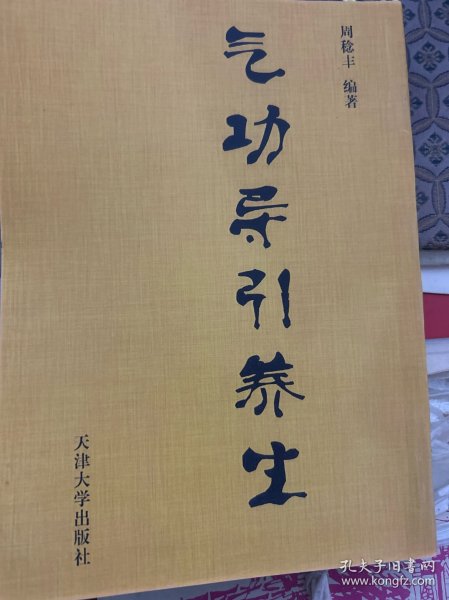 周稔丰 编著
气功导引养生
天津大学出版社
孔夫子旧书网
www.kongfz.com